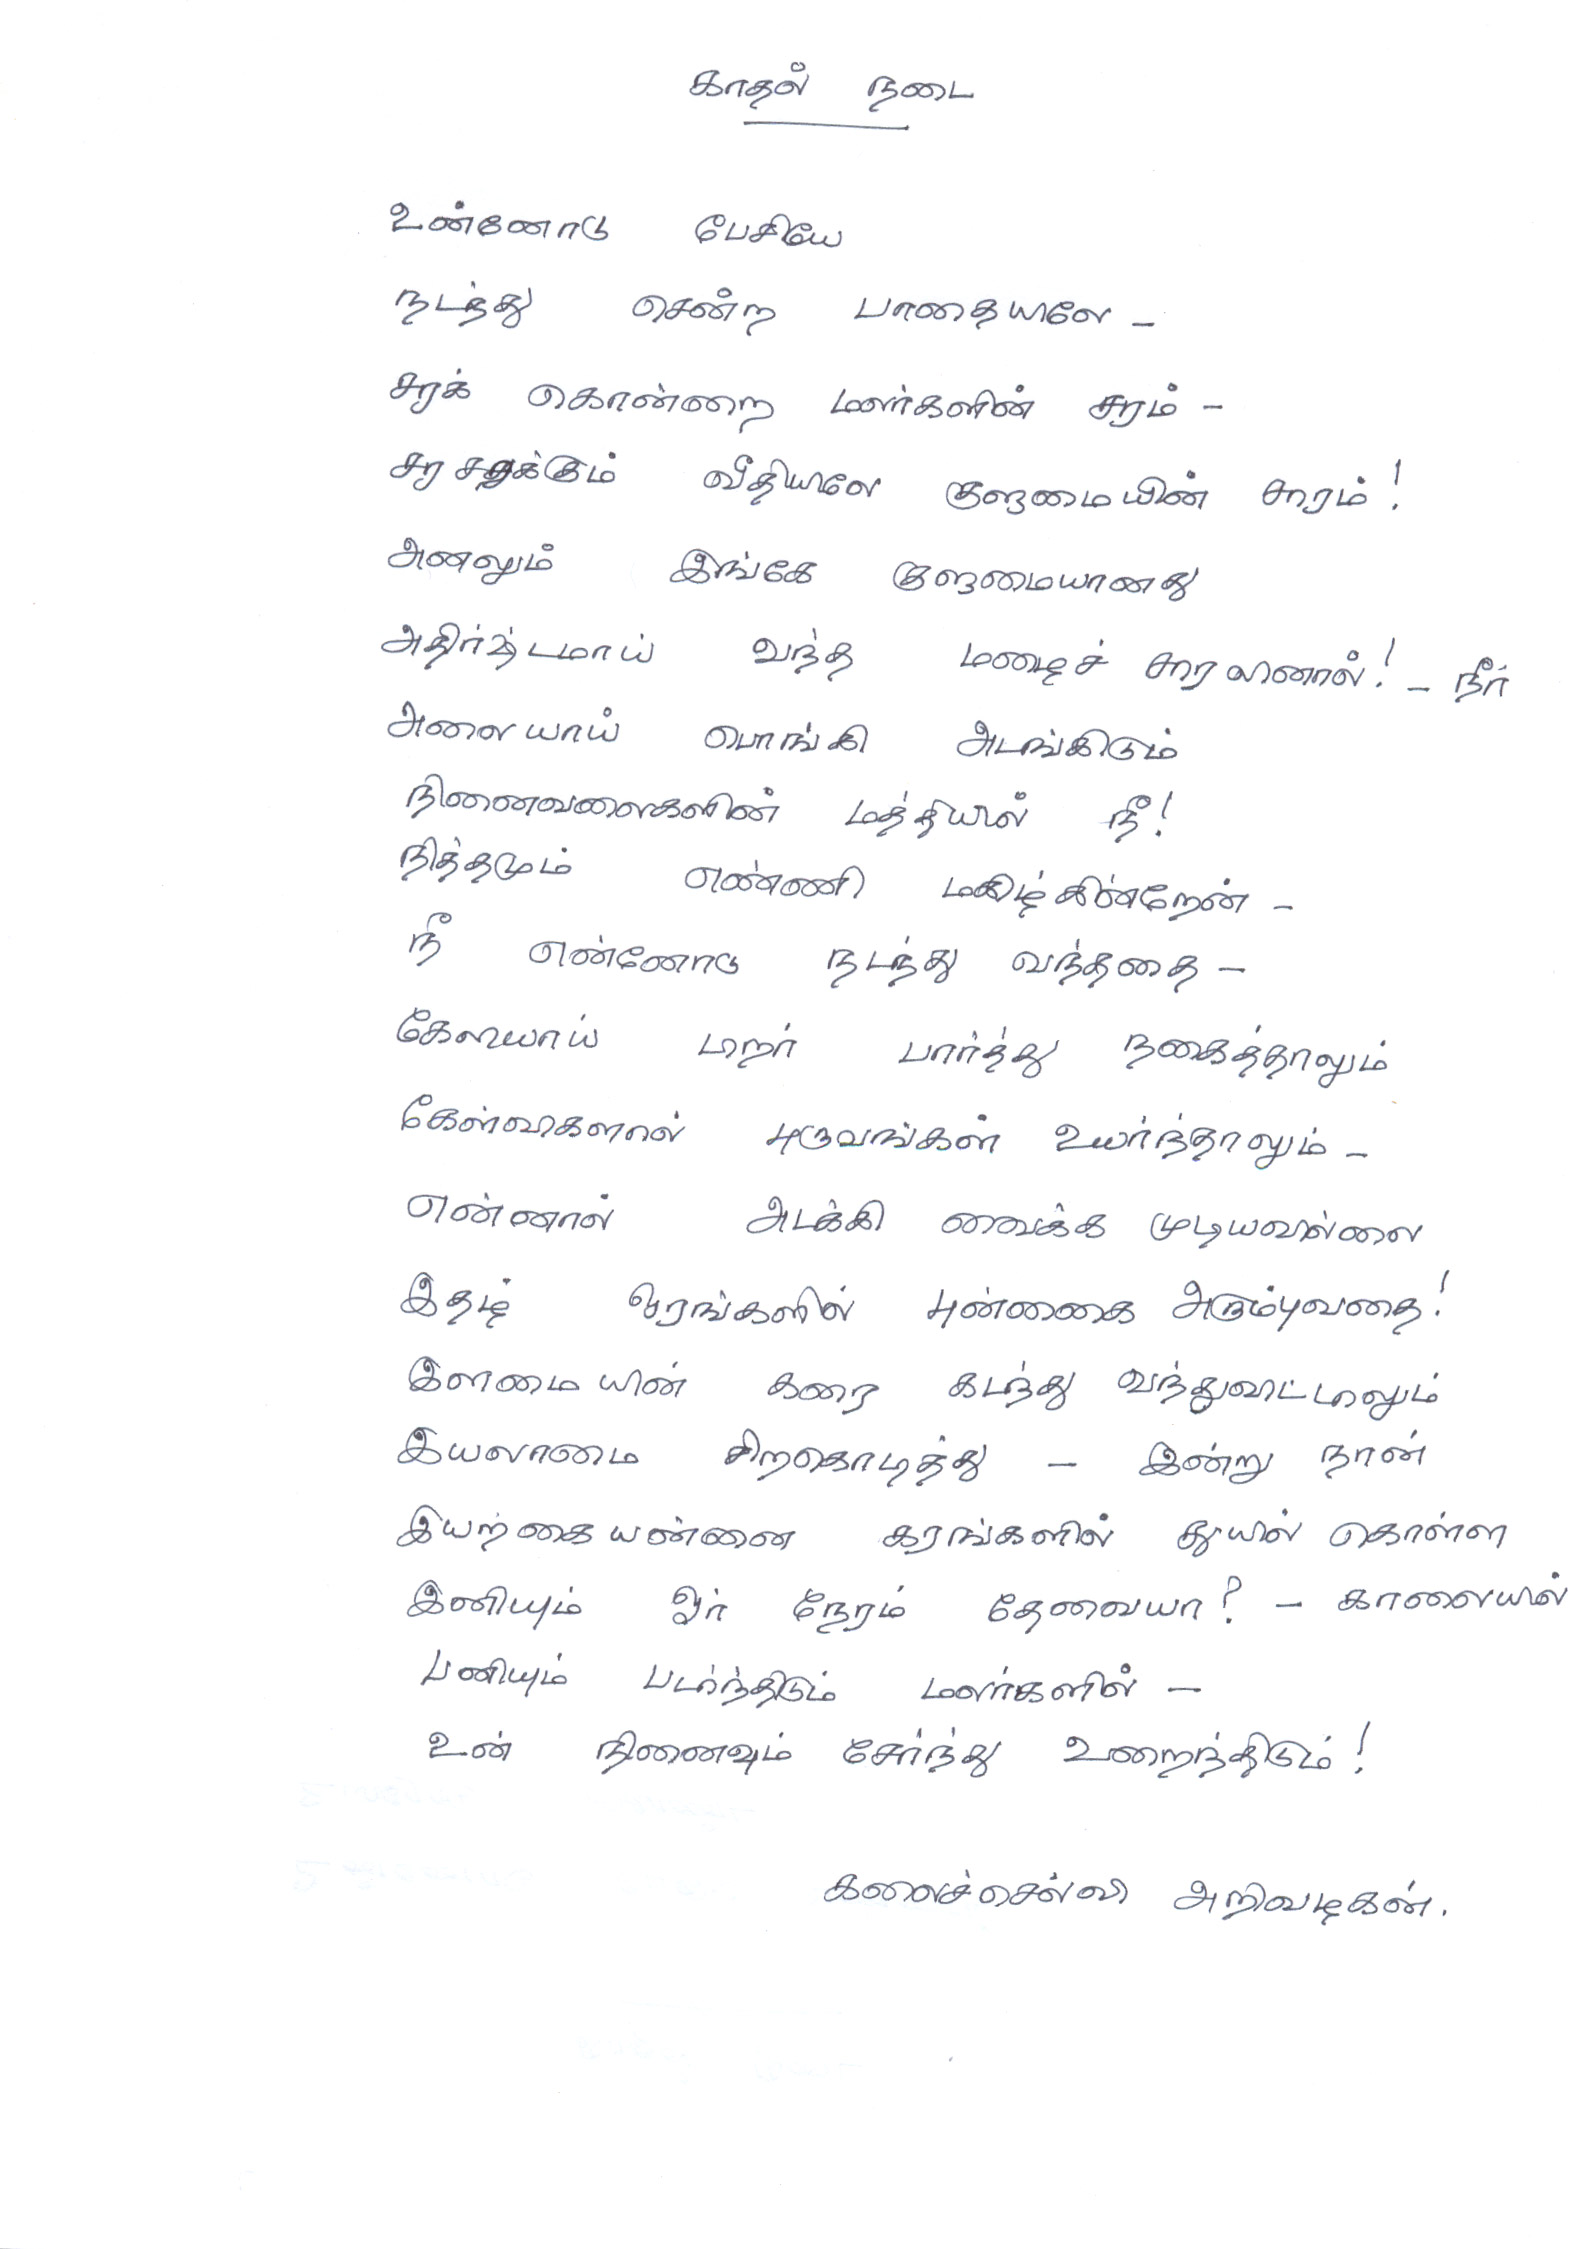 காதல் நடை
உன்னோடு பேசியே
நடந்து சென்ற பாதையிலே -
சரக் கொன்றை மலர்களின் சரம் -
சரசரக்கும் வீதியிலே குளுமையின் சாரம்!
அனலும் இங்கே குளுமையானது
அதிர்ஷ்டமாய் வந்த மழைச் சாரலினால்! - நீர்
அலையாய் பொங்கி அடங்கிடும்
நினைவலைகளின் மத்தியில் நீ!
நித்தமும் எண்ணி மகிழ்கின்றேன் -
நீ என்னோடு நடந்து வந்ததை -
கேலியாய் பிறர் பார்த்து நகைத்தாலும்
கேள்விகளால் புருவங்கள் உயர்ந்தாலும் -
என்னால் அடக்கி வைக்க முடியவில்லை
இதழ் ஓரங்களில் புன்னகை அரும்புவதை!
இளமையின் கரை கடந்து வந்துவிட்டாலும்
இயலாமை சிறகொடித்து - இன்று நான்
இயற்கையன்னை கரங்களில் துயில் கொள்ள
இனியும் ஓர் நேரம் தேவையா? - காலையில்
பனியும் படர்ந்திடும் மலர்களில் -
உன் நினைவும் சேர்ந்து உறைந்திடும்!
கலைச்செல்வி அறிவழகன்.